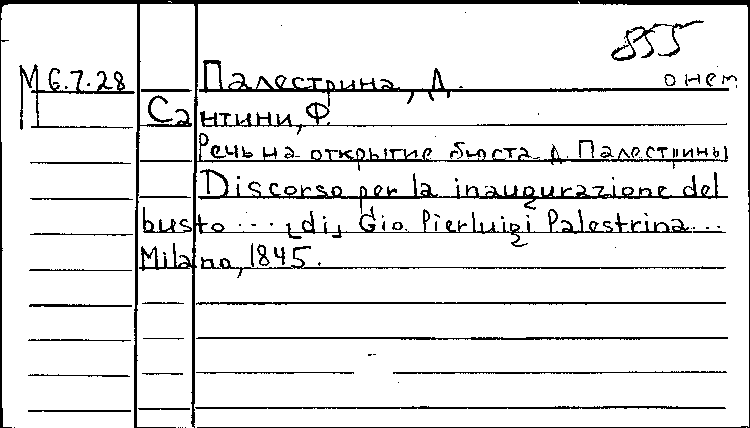 855
М 6.7.28 Палестрина, Д. о нем
Сантини, Ф.
Речь на открытие бюста Д. Палестрины
Discorso per la inaugurazione del
busto ... [di] Gio. Pierluigi Palestrina...
Milano, 1845.